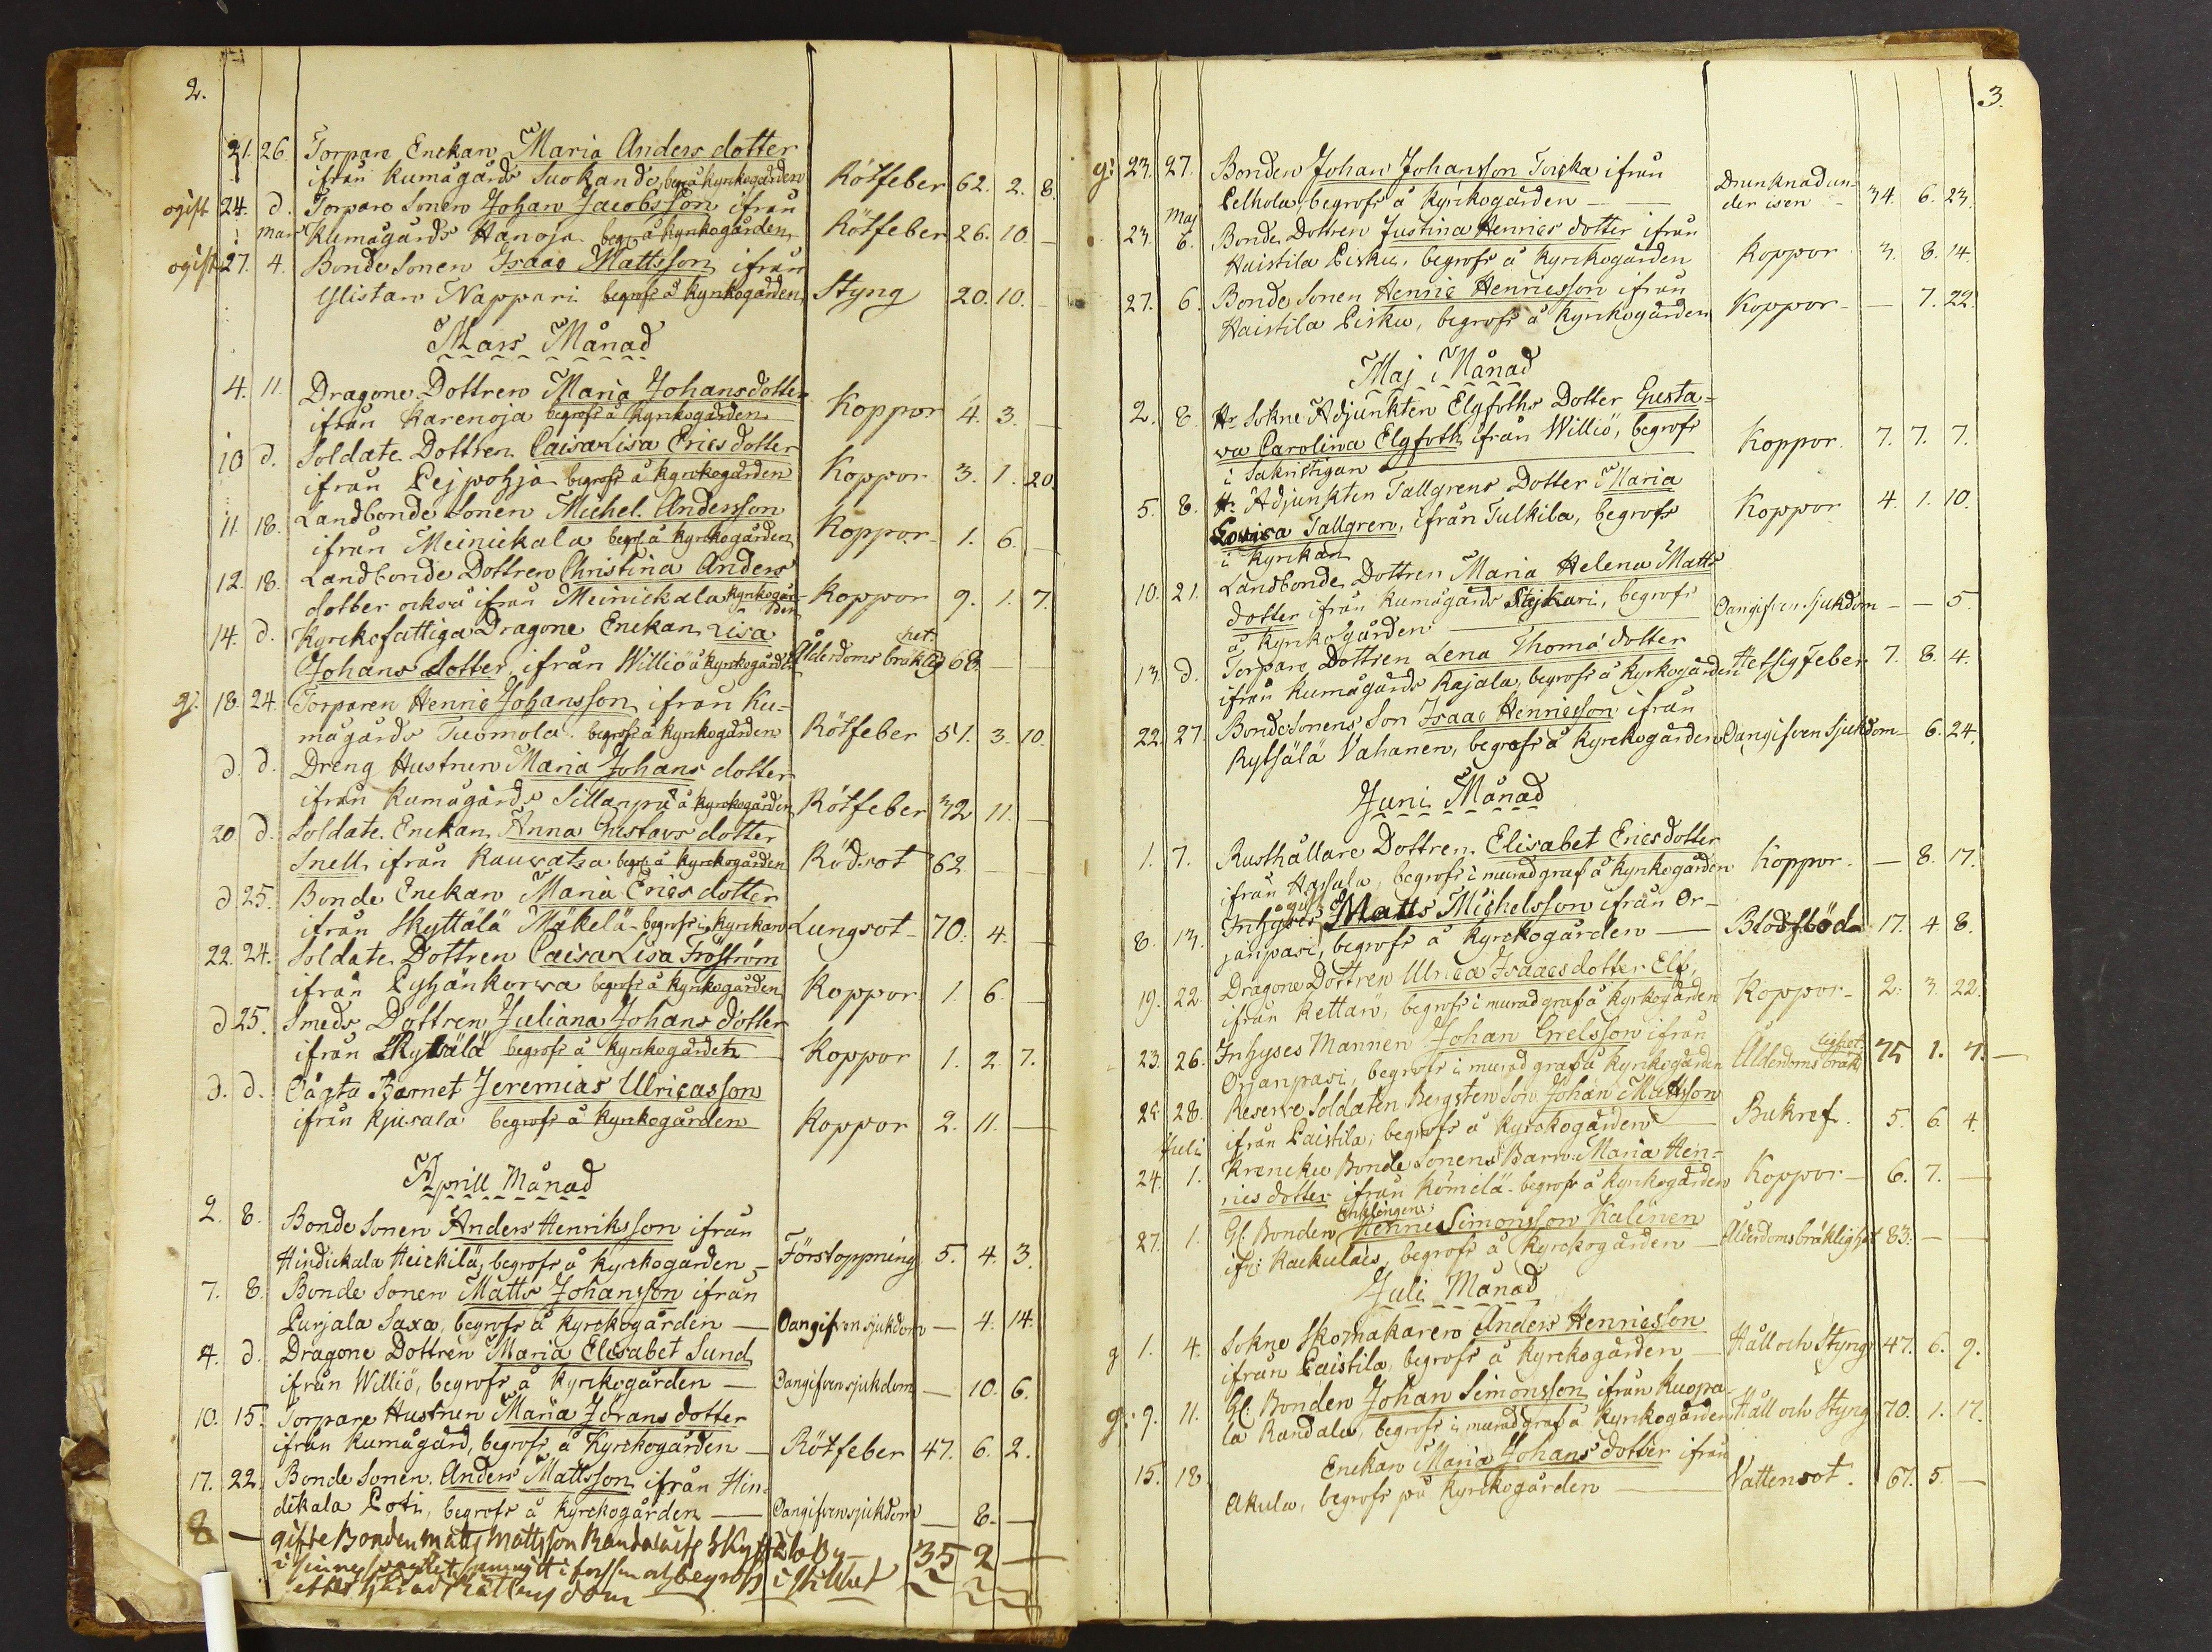 2.
21. 26. Torpare Enckan Maria Anders dotter
ifrån Kumågårds Suokando, begr. å kyrkogården Rötfeber 62. 2. 8.
ogift 24. d. Torpare Sonen Johan Jacobsson ifrån
Mars Kumågårds Hanoja begr. å kyrkogården Rötfeber 26. 10. —
ogift 27. 4. Bonde Sonen Isaac Mattsson ifrån
Ylistaro Nappari begrofs å kyrkogården Styng 20. 10. —
Mars Månad
4. 11. Dragone Dottren Maria Johansdotter
ifrån Karenoja begrofs å kyrkogården Koppor 4. 3. —
10 d. Soldate Dottren Caisa Lisa Erics dotter
ifrån Pejpohja begrofs å kyrckogården Koppor 3. 1. 20.
11. 18. Landbonde Sonen Michel Andersson
ifrån Meinickala begrofs å kyrckogården Koppor 1. 6. —
12. 18. Landbonde Dottren Christina Anders
dotter också ifrån Meinickala å kyrkogården Koppor 9. 1. 7.
14. d. Kyrckofattiga Dragone Enckan Lisa
Johans dotter, ifrån Williö å kyrkogården Ålderdoms bräcklighet 68. — —
g. 18. 24. Torparen Henric Johansson ifrån Ku-
magårds Tuomola begrofs å kyrkogården Rötfeber 51. 3. 10.
d. d. Dreng Hustrun Maria Johans dotter
ifrån Kumågårds Sillanpä å kyrckogården Rötfeber 32 11. —
20. d. Soldate Enckan Anna Gustavs dotter
Snell ifrån Kauvatsa begr. å kyrckogården Rödsot 62. — —
d 25. Bonde Enckan Maria Erics dotter
ifrån Skyttälä Mäkelä begrofs i kyrckan Lungsot 70. 4. —
22. 24. Soldate Dottren Caisa Lisa Fröström
ifrån Pyhänkorwa begrofs å kyrkogården Koppor 1. 6. —
d 25. Smeds Dottren Juliana Johans dotter
ifrån Rytsälä begrofs å kyrckogården Koppor 1. 2. 7.
d. d. Oägta Barnet Jeremias Ulricasson
ifrån Kjusala begrofs å kyrkogården Koppor 2. 11. —
Aprill Månad
2. 8. Bonde Sonen Anders Henriksson ifrån
Hindickala Heickilä, begrofs å kyrckogården Förstoppning 5. 4. 3.
7. 8. Bonde Sonen Matts Johansson ifrån
Purjala Saxa, begrofs å kyrckogården — Oangifven sjukdom — 4. 14.
4. d. Dragone Dottren Maria Elisabet Sund
ifrån Williö, begrofs å kyrckogården — Oangifven sjukdom — 10. 6.
10. 15. Torpare Hustrun Maria Jörans dotter
ifrån Kumågård, begrofs å Kyrckogården — Rötfeber 47. 6. 2.
17. 22. Bonde Sonen Anders Mattsson ifrån Hin-
dikala Poti, begrofs å kyrckogården — Oangifven sjukdom — 8. —
8 — gifte Bonden Matts Mattsson Skyttälä By — 35 2 —
i begrofs i stillhet
efter Härads Rättens dom
3.
g: 23. 27. Bonden Johan Johansson Tuska ifrån
Pelhola, begrofs å Kyrkogården — Drunknad un-
der isen 34. 6. 23.
Maj
23. 6. Bonde Dottren Justina Henrics dotter ifrån
Haistila Pisku, begrofs å kyrckogården Koppor 3. 8. 14.
27. 6. Bonde Sonen Henric Henricsson ifrån
Haistila Pisku, begrofs å kyrkogården Koppor — 7. 22.
Maj Månad
2. 8. Hr Sokne Adjunkten Elgfoths Dotter Gusta-
va Carolina Elgfoth ifrån Williö, begrofs
i Sakristigan Koppor. 7. 7. 7.
5. 8. Hr Adjunkten Tallgrens Dotter Maria
Lovisa Tallgren, ifrån Tulkila, begrofs
i kyrckan Koppor 4. 1. 10.
10. 21. Landbonde Dottren Maria Helena Matts
dotter ifrån Kumågårds Stejkari, begrofs
å kyrkogården Oangifven sjukdom — — 5.
13. d. Torpare Dottren Lena Thomæ dotter
ifrån Kumågårds Rajala begrofs å kyrkogården Hetsig Feber 7. 8. 4.
22. 27. Bonde Sonens Son Isaac Henricsson ifrån
Rytsälä Vahanen, begrofs å kyrckogården Oangifven Sjukdom — 6. 24.
Juni Månad
1. 7. Rusthållare Dottren Elisabet Ericsdotter
ifrån Hassala, begrofs i murad graf å kyrkogården Koppor. — 8. 17.
ogift
8. 13. Inhyses Matts Michelsson ifrån Or-
janpasi, begrofs å kyrckogården — Blodflöda 17. 4. 8.
19. 22. Dragone Dottren Ulrica Isaacsdotter Elf,
ifrån Kettan, begrofs i murad graf å kyrkogården Koppor — 2. 3. 22.
23. 26. Inhyses Mannen Johan Grelsson ifrån
Orjanpasi, begrofs i murad graf å kyrkogården Ålderdoms bräcklighet 75 1. 4. —
24. 28. Reserve Soldaten Bergsten Son Johan Mattsson
ifrån Paistila, begrofs å kyrckogården Bukref. 5. 6. 4.
Juli
24. 1. Kraneku Bonde Sonens Barn Maria Hen-
rics dotter ifrån Kömelä begrofs å kyrkogården Koppor — 6. 7. —
Enklingen
27. 1. Gl. Bonden Henric Simonsson Kalinen
ifr: Kackulais, begrofs å kyrckogården Ålderdoms bräklighet 83. — —
Juli Månad
g 1. 4. Sokne Skomakaren Anders Henricsson
ifrån Paistila, begrofs å kyrckogården — Håll och Styng 47. 6. 9.
g: 9. 11. Gl. Bonden Johan Simonsson ifrån Kuopa-
la Randala, begrofs i murad graf å kyrkogården Håll och Styng 70. 1. 17.
15. 18. Enckan Maria Johans dotter ifrån
Akula, begrofs på kyrckogården — Vattensot. 67. 5. —